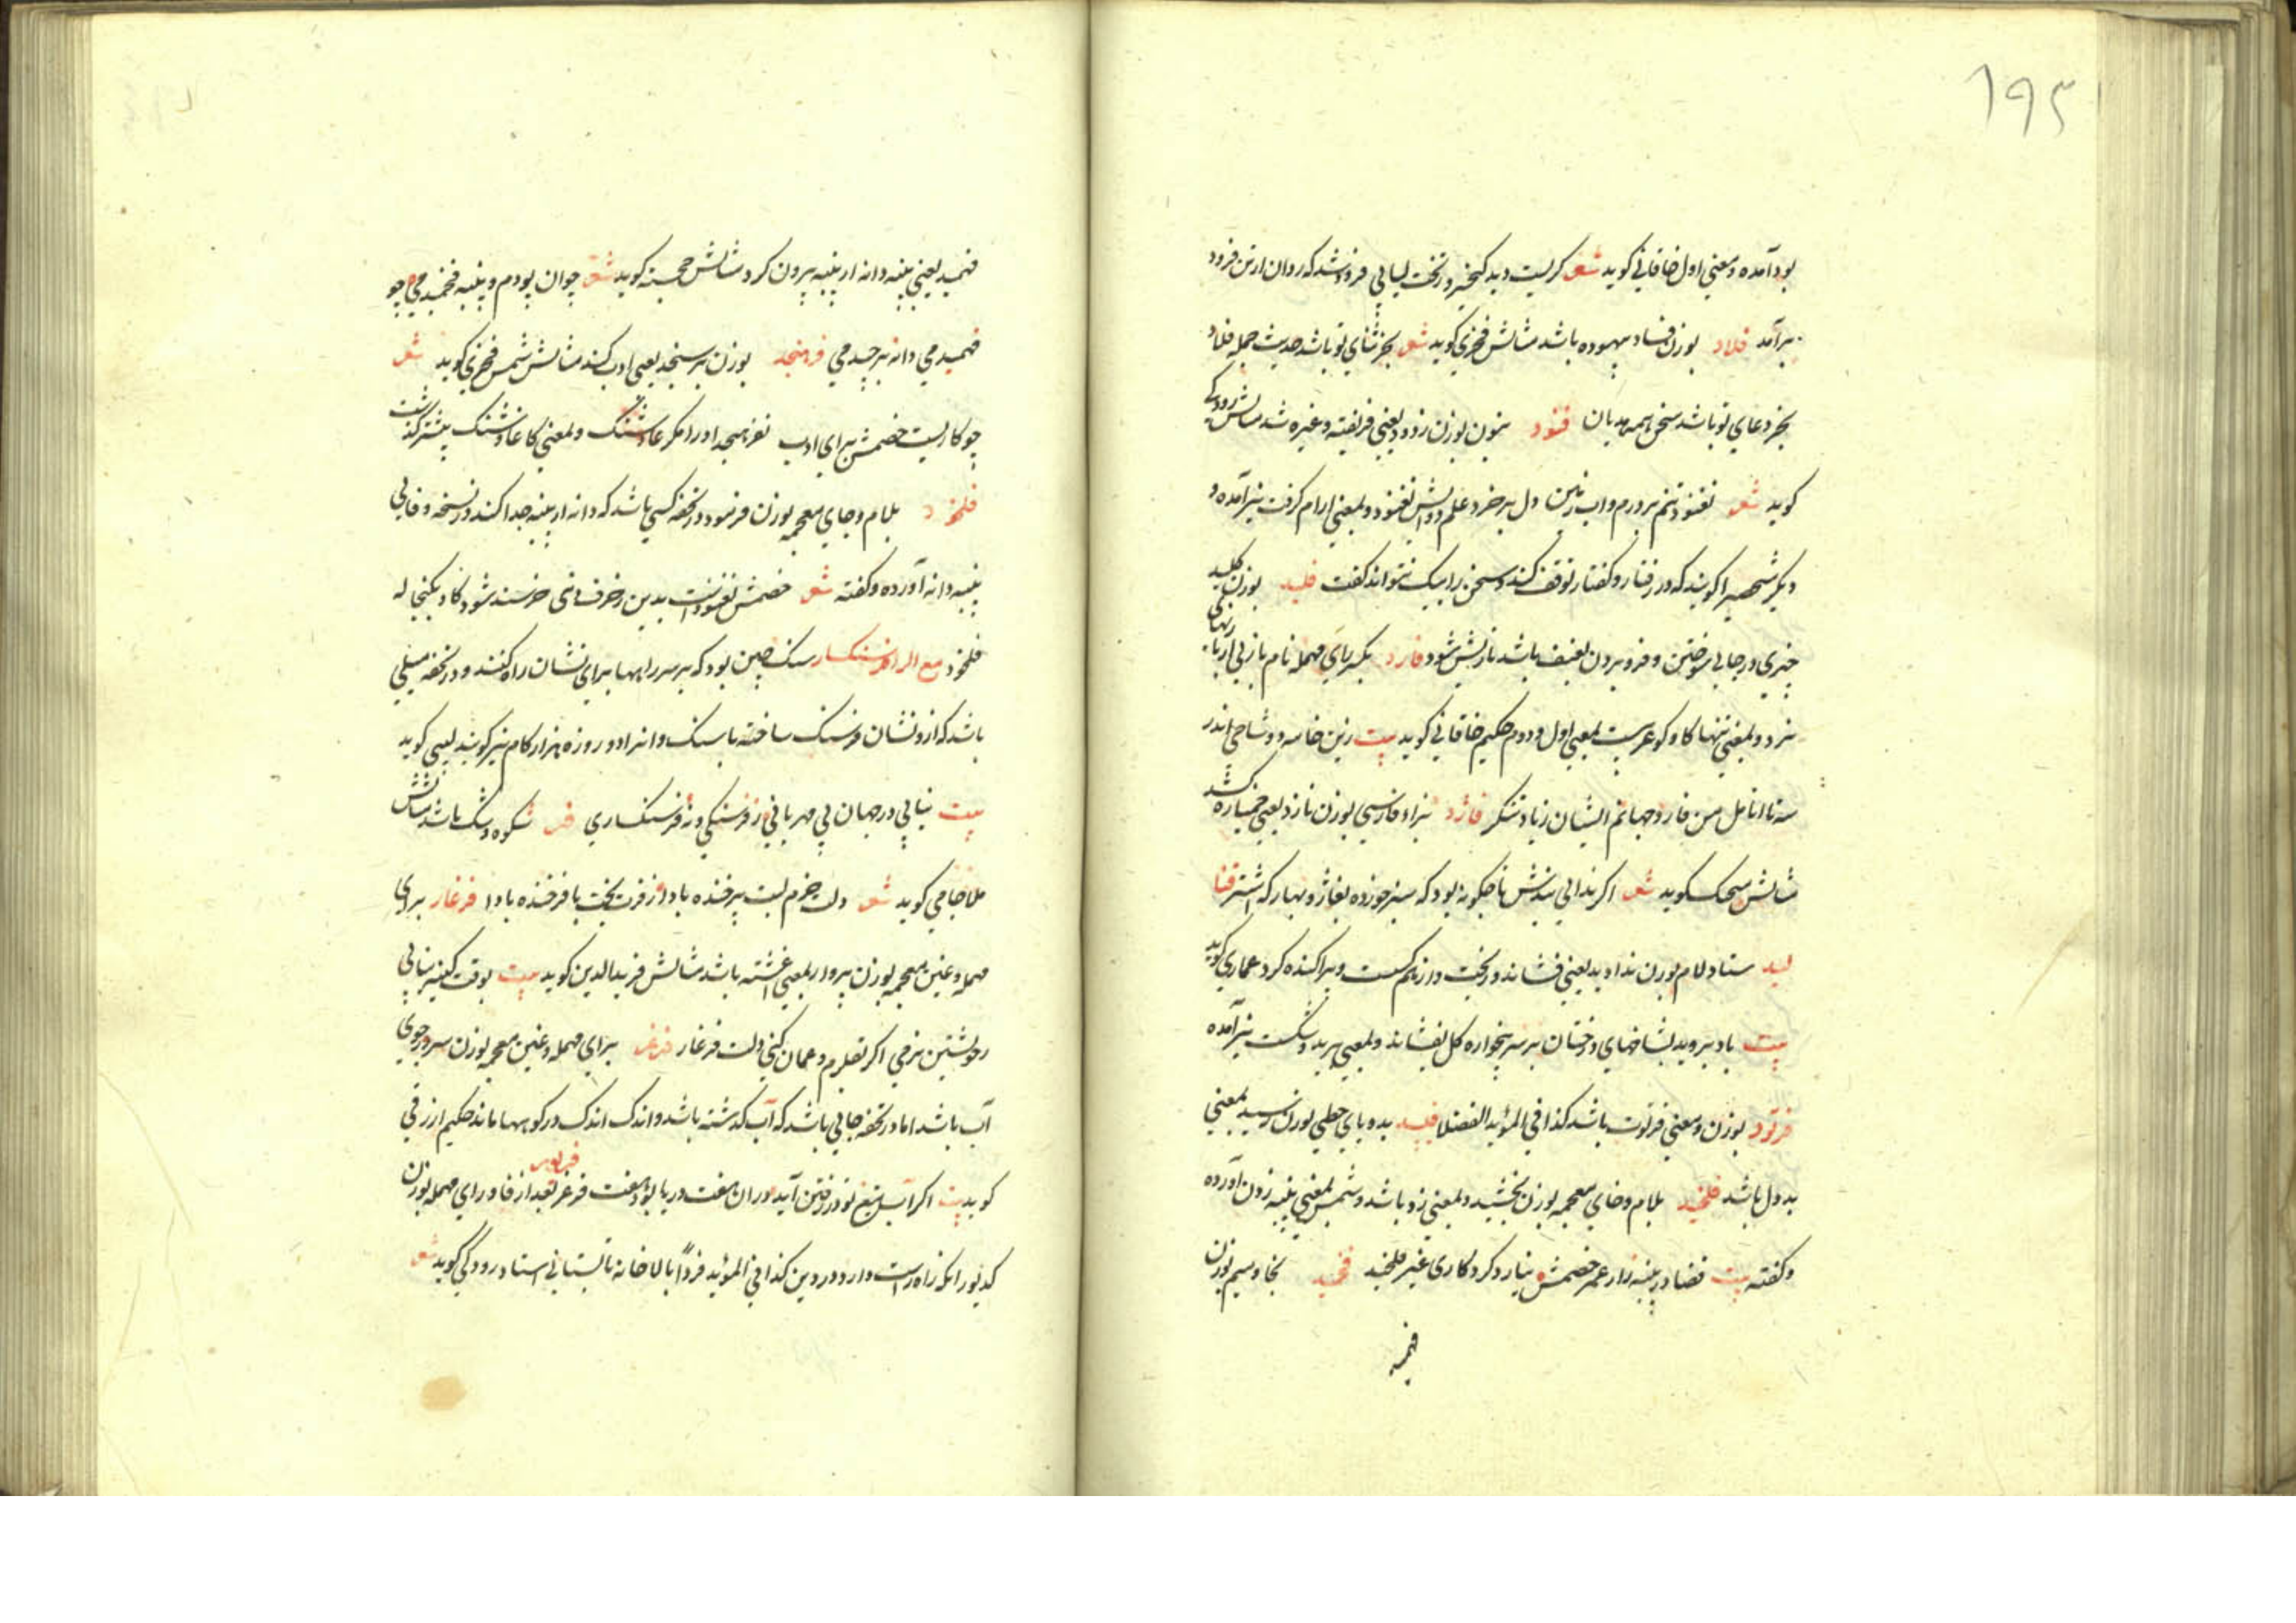 ۱۹۲
بود آمده و بمعنی اول خاقانی کوید شعر کریست دید کیخسرو زتخت کیانی فرود شد که روان از تن فرود
برآمد فلاد بوزن فساد بیهوده باشد مثالش فخری کوید شعر بجز ثنای تو باشد حدیث جمله فلاد
بجز دعای تو باشد سخن همه هدیان فنود بنون بوزن زدود یعنی فریفته و غره شد مثالش رودکی
کوید شعر نغنود تنم بر درم و آب زمین دل بر خرد و علم و دانش نفنود و بمعنی آرام کرفت نیز آمده و
دیکر شخصیرا کویند که در رفتار و کفتار توقف کند و سخن را نیک نتواند کفت فلید بوزن کلید
چیزی در جایی سوختن و فرو بردن بعنف باشد تا ریش شود فارد بکسر رای مهمله نام بازیی از بازیهای
نرد و بمعنی تنها کاو کوهریست بمعنی اول و دوم حکیم خاقانی کوید بیت زین خامه دو شاخی اندر
سه تا انامل من فارد جهانم ایشان زیاد منکر فاژد بزاء فارسی بوزن نازد یعنی خمیازه کشد
مثالش منجیک کوید شعر اکر ندانی بندیش تا چکونه بود که سبز خورده بفاژد بهار که اشتر فتا
لید ستاء و لام بوزن ندا دید یعنی فشاند و ریخت و از هم کسست و پراکنده کرد عماری کوید
بیت باد بر وید بشاخهای درختان بر سر میخواره کل بفشاند و بمعنی برید و شکست نیز آمده
فرتود بوزن و معنی فرتوت باشد کذا فی المؤید الفضلا فلید بدو یای حطی بوزن رسید بمعنی
بد دل باشد فلخید بلام و خای معجمه بوزن بخشید و بمعنی زد باشد و شمس بمعنی پنبه زدن آورده
و کفته بیت قضا در پنبه زار عمر خصمش نیارد کرد کاری غیر فلخید فخمید بخا و میم بوزن
فهمید
فهمید یعنی پنبه دانه از پنبه بیرون کرد مثالش حجسته کوید شعر جوان بودم و پنبه فخمیدمی چو
فخمیدمی دانه برچیدمی فرهنجد بوزن برسنجد یعنی ادب کند مثالش شمس فخری کوید شعر
چو کاریست خصمش برای ادب بفرهنجد او را مکر عاد و شنک و بمعنی کا عاد و شنک بیشتر کذشت
فلخود بلام و خای معجمه بوزن فرمود در تحفه کسی باشد که دانه از پنبه جدا کند و در نسخه وفایی
پنبه دانه آورده و کفته شعر خصمش بدین خرف خرسند شود کاو بکنجاله
فلخود مع الراء فرسنکسار سنک چین بود که بر سر راهها برای نشان راه کنند و در تحفه میلی
باشد که از و نشان فرسنک ساخته باشند و انرا دو روزه هزار کام نیز کویند لبیبی کوید
بیت نیابی در جهان بی مهربانی نه فرسنکی و نه فرسنکساری فر شکوه و شک باشد مثالش
ملا جامی کوید شعر دلت خرم لبت پرخنده بادا ز فرت بخت ما فرخنده بادا فرغار برای
مهمله و غین معجمه بوزن پروار بمعنی اغشته باشد مثالش فرید الدین کوید بیت بوقت کینه نیابی
ز خویشتن نرمی اکر بقلزم و عمان کنی دلت فرغار فرغر برای مهمله و غین معجمه بوزن سرور جوی
آب باشد اما در تحفه جایی باشد که آب کذشته باشد و اندک اندک در کوبها ماند حکیم ازرقی
کوید بیت اکر آسیب تیغ تو در رفتن آید دران هفت دریا بود هفت فرغر فریور بعد از فا و رای مهمله بوزن
کدیور انکه راه راست دارد در دین کذا فی المؤید فرداً بالاخانه تابستانی استاد رودکی کوید شعر